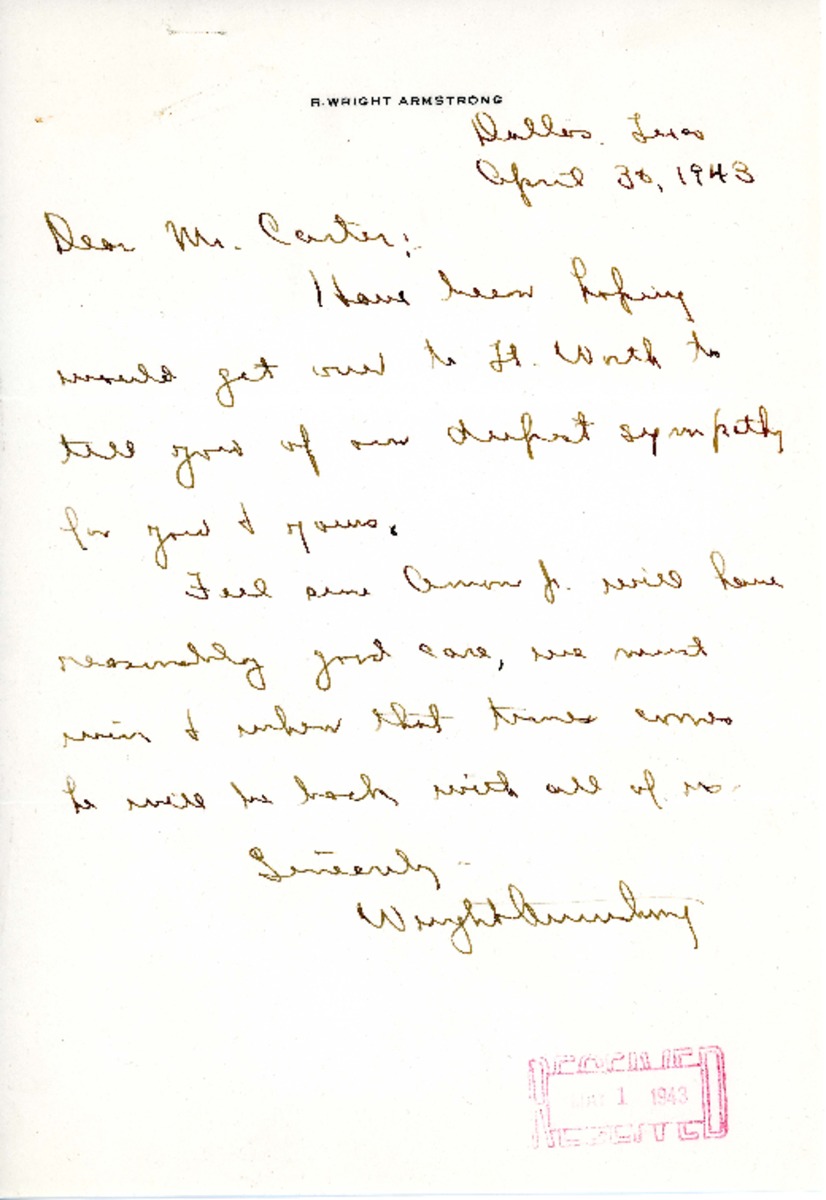 R. WRIGHT ARMSTRONG
Dallas, Texas
April 30, 1943
Dear Mr. Carter:
Have been hoping
would get over to Ft. Worth to
tell you of our deepest sympathy
for you & yours.
Feel sure Amon Jr. will have
reasonably good care, we must
win & when that time comes
he will be back with all of us.
Sincerely -
Wright Armstrong
RECEIVED
MAY 1 1943
RECEIVED